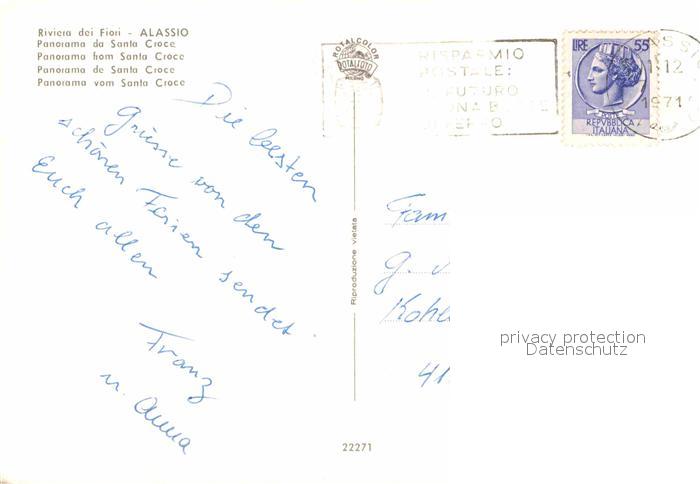 Riviera dei Fiori - ALASSIO
Panorama da Santa Croce
Panorama from Santa Croce
Panorama de Santa Croce
Panorama vom Santa Croce
Die besten
Grüsse von den
schönen Ferien sendet
Euch allen
Franz
u. Anna
22271
Riproduzione vietata
ROTALCOLOR
ROTALFOTO
RISPARMIO
POSTALE:
FUTURO
LIRE 55
POSTE
REPVBBLICA
ITALIANA
12
1971
Fam
G. v
Kohl
41
privacy protection
Datenschutz